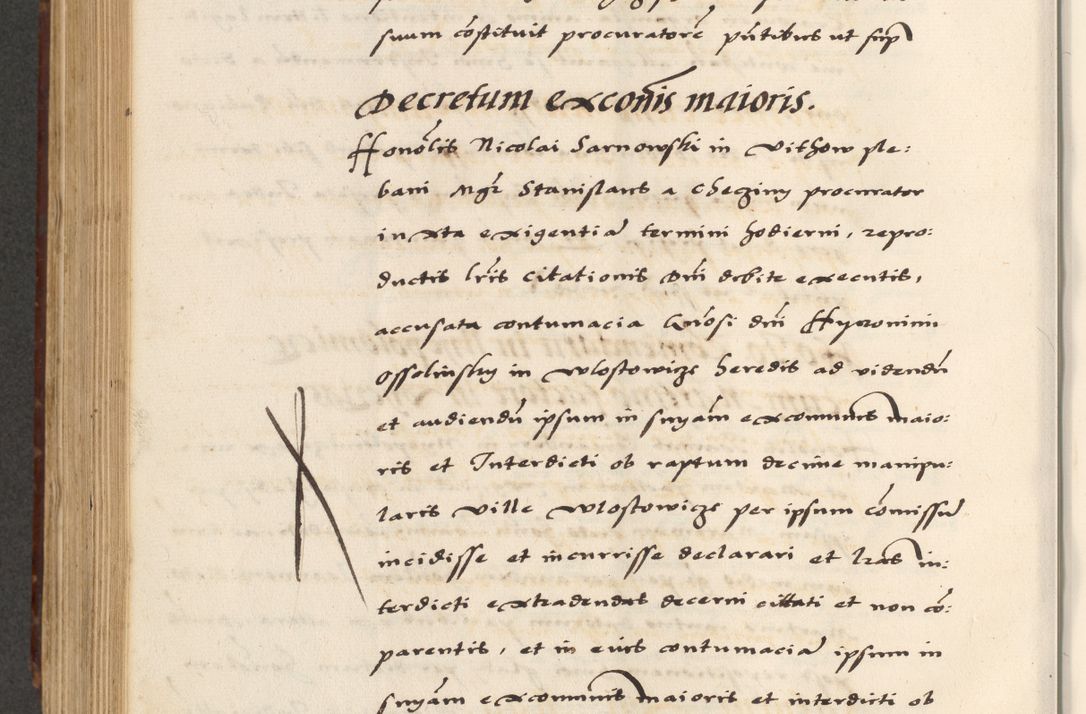 suum cõstituit procuratorẽ pñtibus ut supr
Decretum exconĩs maioris.
Honõlis Nicolai Sarnowski in Vithow ple:
bani Mgr̃ Stanislaus a Cheginy procurator
iuxta exigentiã termini hodierni, repro:
ductis lr̃is citationis dñi debite executis,
accusata contumacia Gñosi dñi Hyeronimi
Ossolinsky in Wlostowicze heredis ad videndũ
et audiendũ ipsum in snyãm excomunis maio:
ris et Interdicti ob raptum decime manipu:
laris ville Wlostowicze per ipsum cõmissũ
incidisse et incurrisse declarari et lr̃as in:
terdicti extradendas decerni citati et non cõ:
parentis, et in eius contumaciã ipsum in
snyãm excomunis maioris et interdicti ob